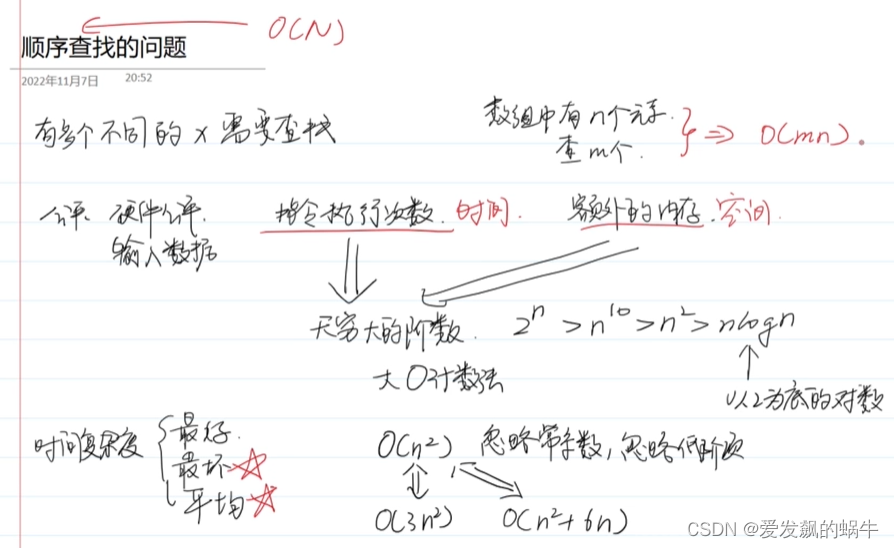 O(N)
顺序查找的问题
2022年11月7日 20:52
有多个不同的 x 需要查找
数组中有 n 个元素.
查 m 个.
⇒ O(mn).
公平. 硬件公平.
输入数据
指令执行次数. 时间.
额外的内存. 空间.
无穷大的阶数. 2^n > n^10 > n^2 > nlogn
大O计数法
以2为底的对数
时间复杂度
最好.
最坏☆
平均☆
O(n²) 忽略常系数, 忽略低阶项
O(3n²) O(n²+6n)
CSDN @爱发飙的蜗牛